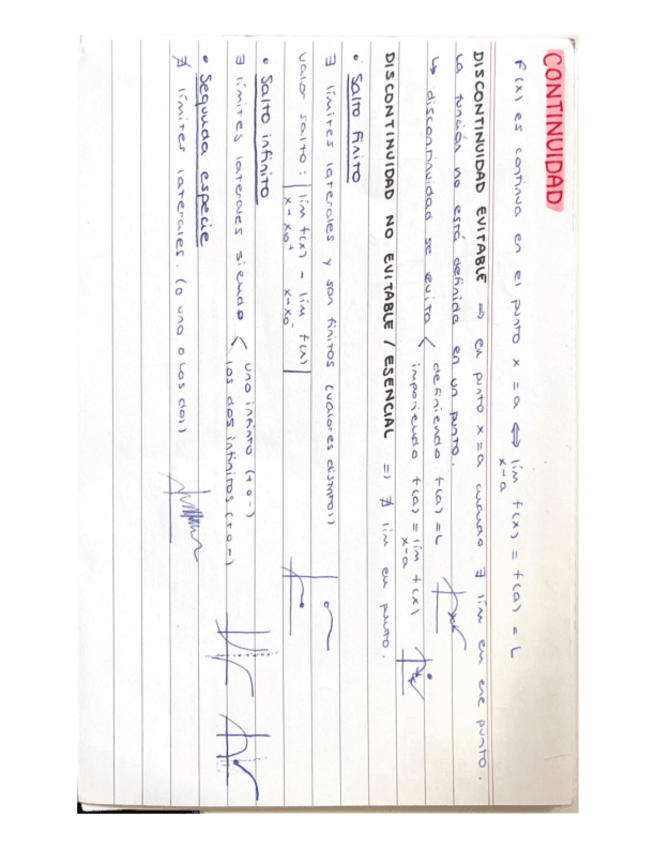 CONTINUIDAD
f(x) es continua en el punto x = a ⇔ lim f(x) = f(a) = L
x→a
DISCONTINUIDAD EVITABLE => en punto x = a cuando ∃ lim en ese punto.
La función no está definida en un punto.
↳ discontinuidad se evita < definiendo f(a) = L
imponiendo f(a) = lim f(x)
x→a
DISCONTINUIDAD NO EVITABLE / ESENCIAL => ∄ lim en punto.
• Salto finito
∃ límites laterales y son finitos (valores distintos)
valor salto: | lim f(x) - lim f(x) |
x→x₀⁺ x→x₀⁻
• Salto infinito
∃ límites laterales siendo < uno infinito (+ o -)
los dos infinitos (+ o -)
• Segunda especie
∄ límites laterales. (o uno o los dos)